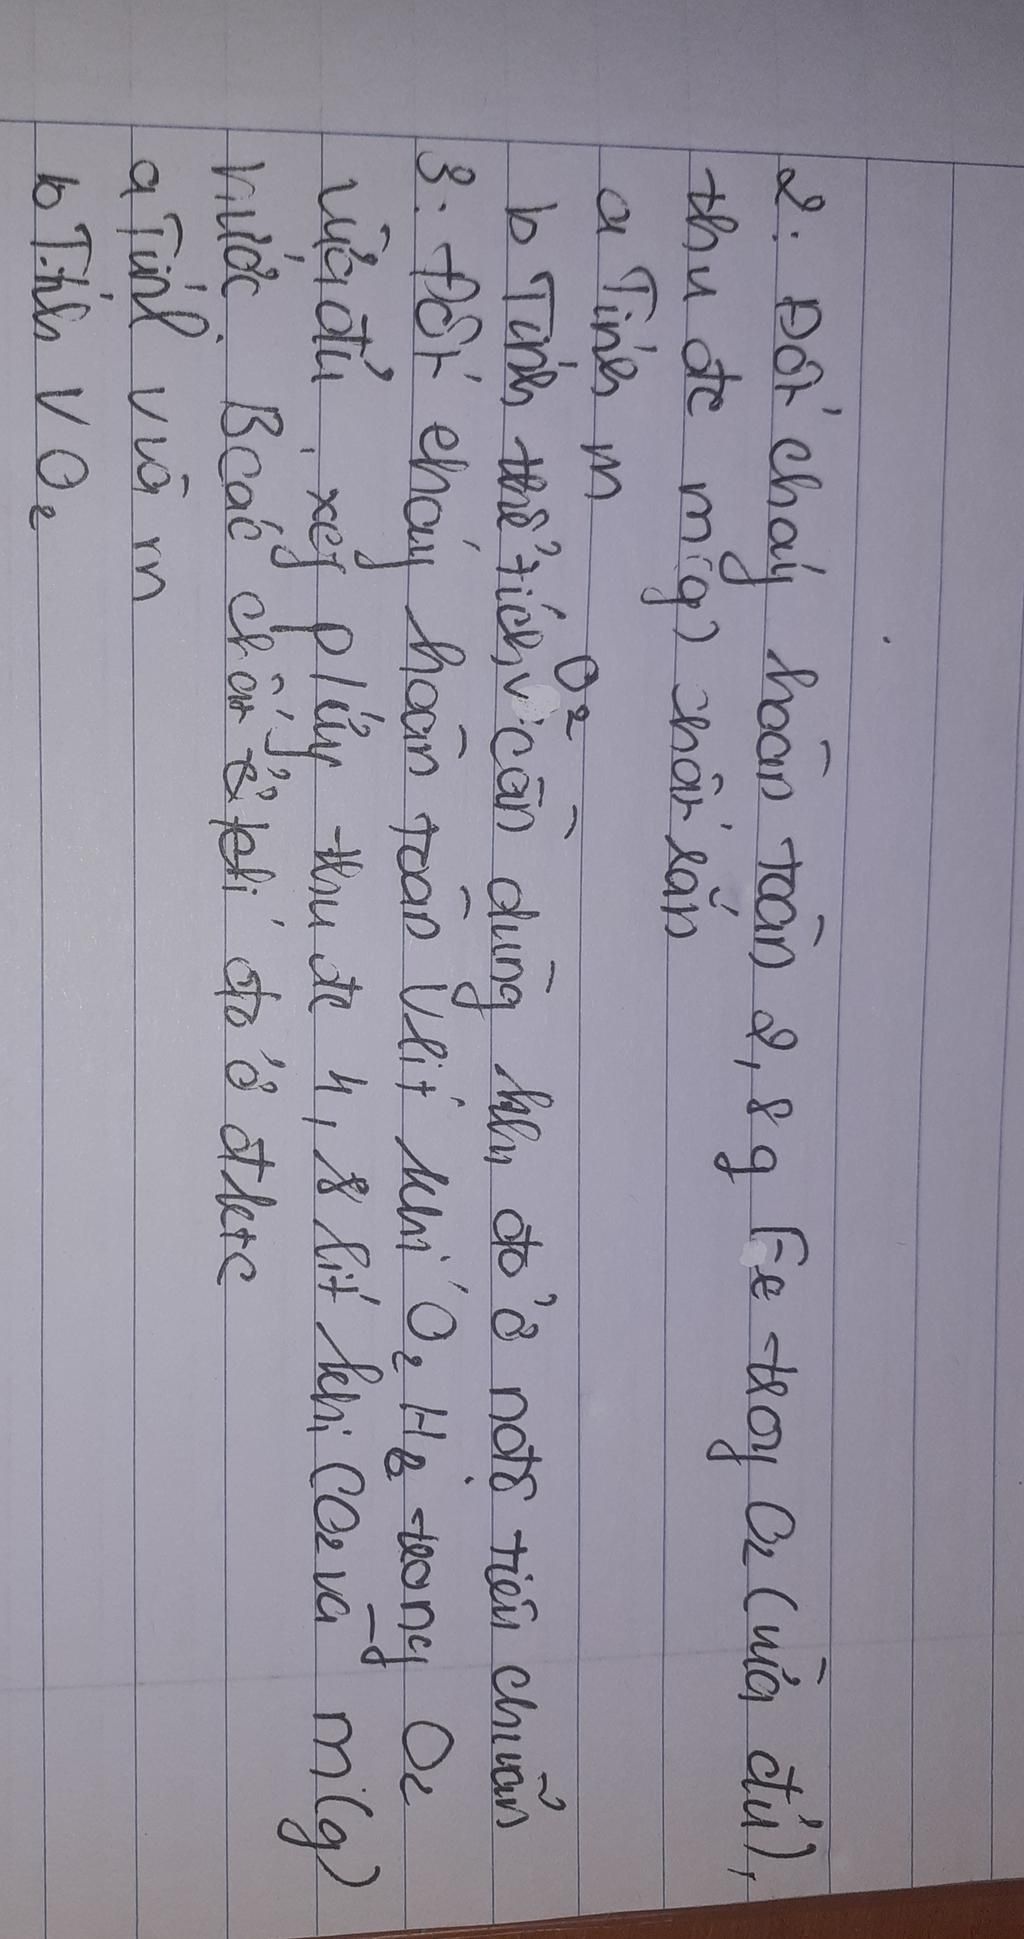 2: Đốt cháy hoàn toàn 2,8g Fe trog O₂ (vừa đủ),
thu đc m(g) chất rắn
a Tính m
b Tính thể tích V O₂ cần dùng khi đo ở nđộ tiêu chuẩn
3: Đốt cháy hoàn toàn V lít khí O₂ H₆ trong O₂
vừa đủ, xg p/ứy thu đc 4,8 lít khí CO₂ và m(g)
nước. B các chất ở khí đo ở đktc
a Tính V và m
b Tính V O₂